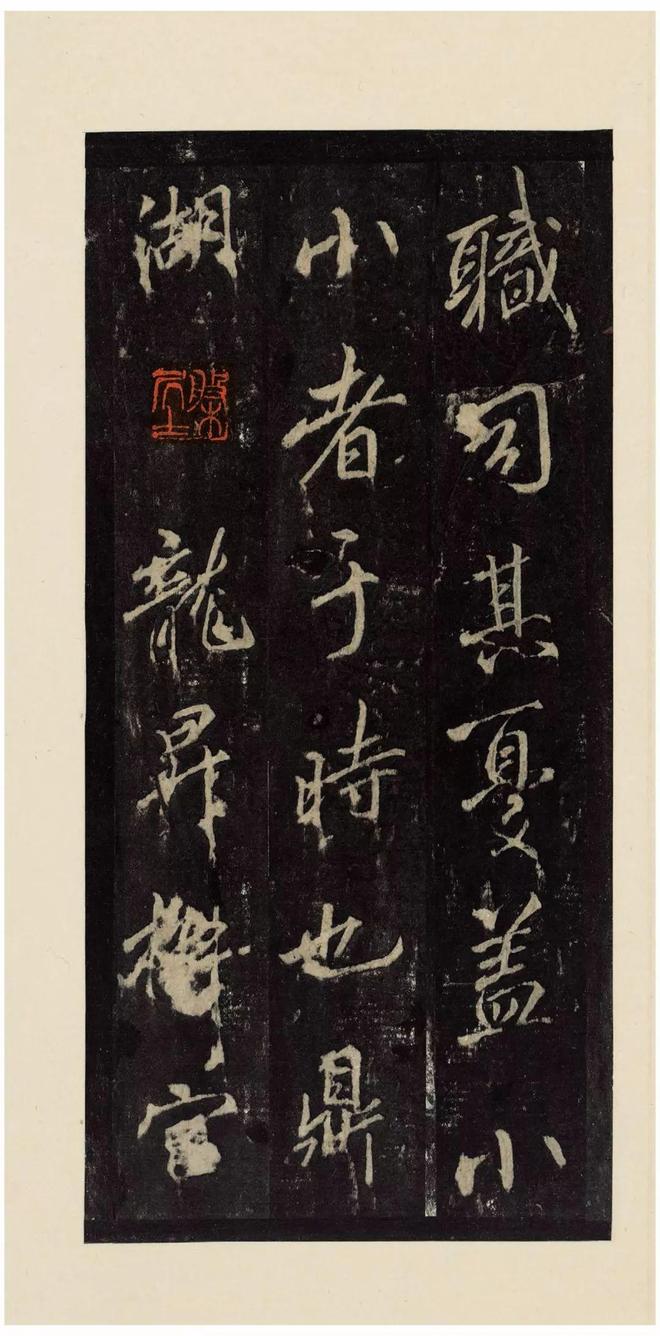 職司其夏蓋小
小者于時也鼎
湖龍昇